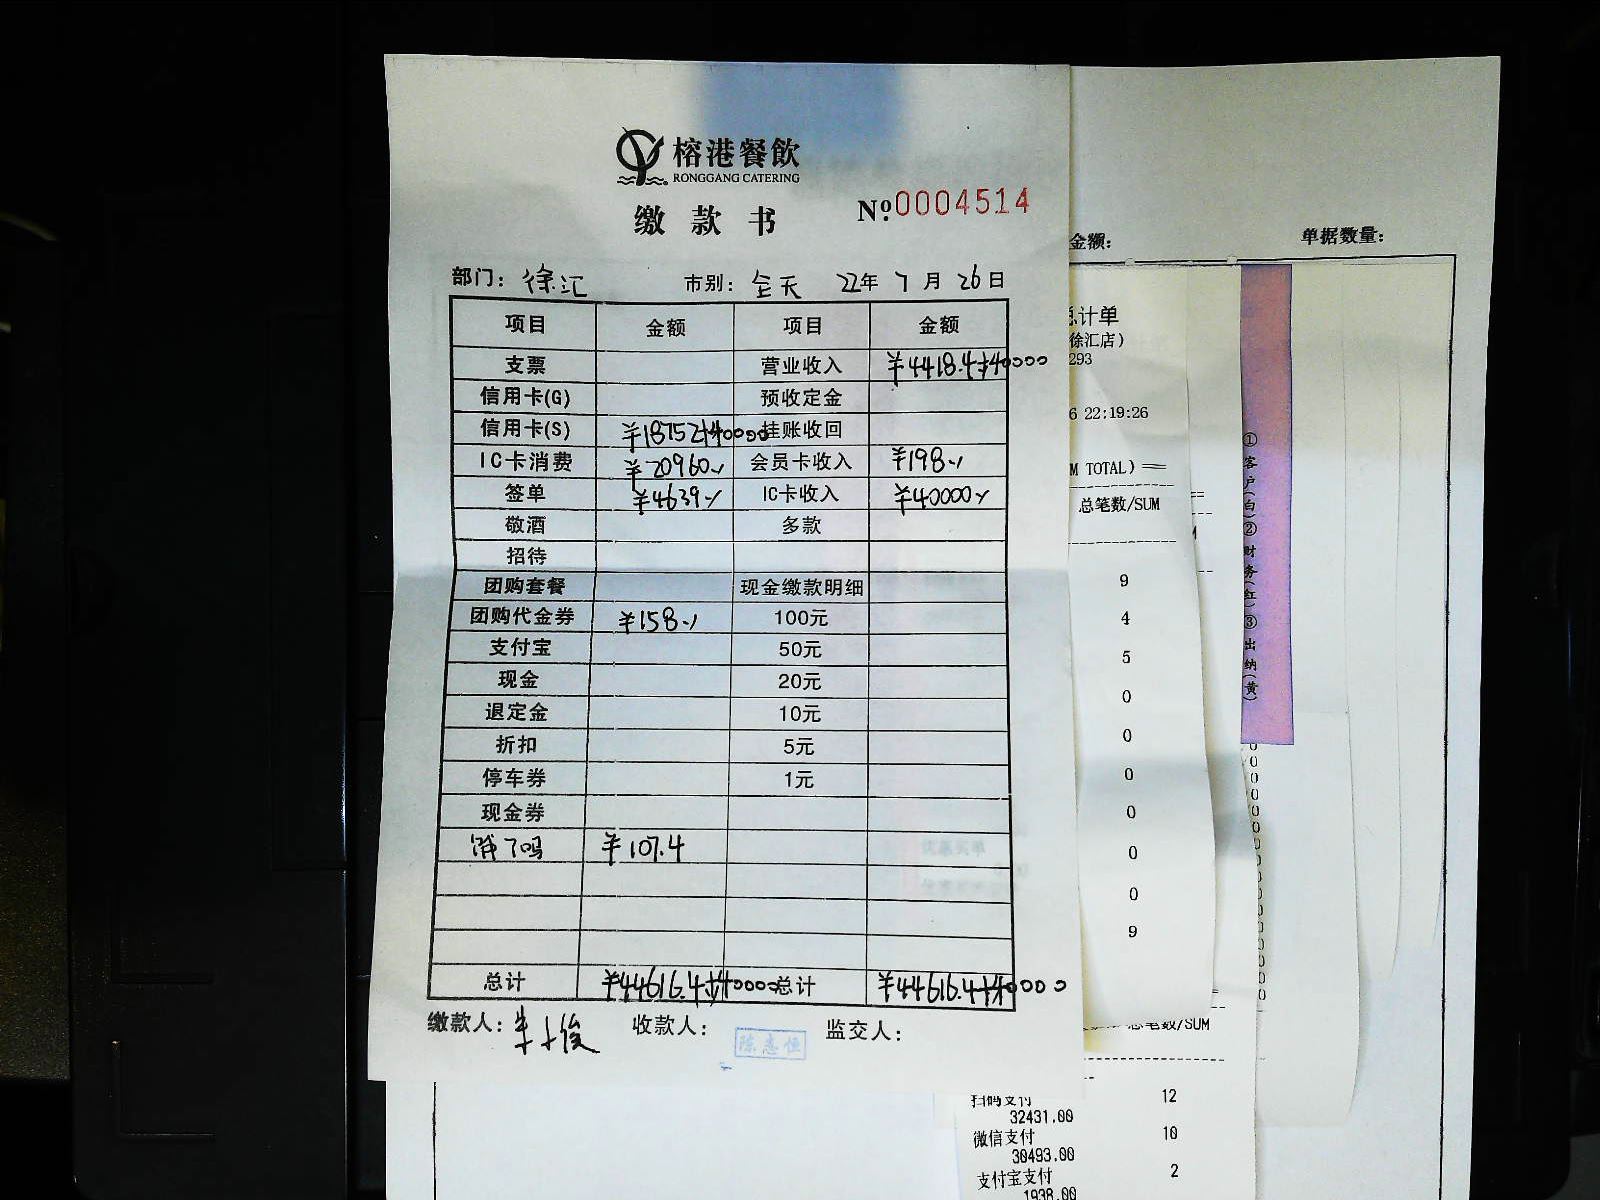 榕港餐飲
RONGGANG CATERING
缴款书 Nº 0004514
部门: 徐汇 市别: 全天 22年 7月 26日
项目 金额 项目 金额
支票 营业收入 ¥44418.4+40000
信用卡(G) 预收定金
信用卡(S) ¥18752+40000 挂账收回
IC卡消费 ¥20960 会员卡收入 ¥198
签单 ¥4639 IC卡收入 ¥40000
敬酒 多款
招待
团购套餐 现金缴款明细
团购代金券 ¥158 100元
支付宝 50元
现金 20元
退定金 10元
折扣 5元
停车券 1元
现金券
饿了吗 ¥107.4
总计 ¥44616.4+40000 总计 ¥44616.4+40000
缴款人: 收款人: 陈志恒 监交人:
金额: 单据数量:
总计单
徐汇店)
293
6 22:19:26
M TOTAL)==
总笔数/SUM
9
4
5
0
0
0
0
0
0
9
①客户(白)②财务(红)③出纳(黄)
总笔数/SUM
扫码支付 12
32431.00
微信支付 10
30493.00
支付宝支付 2
1938.00